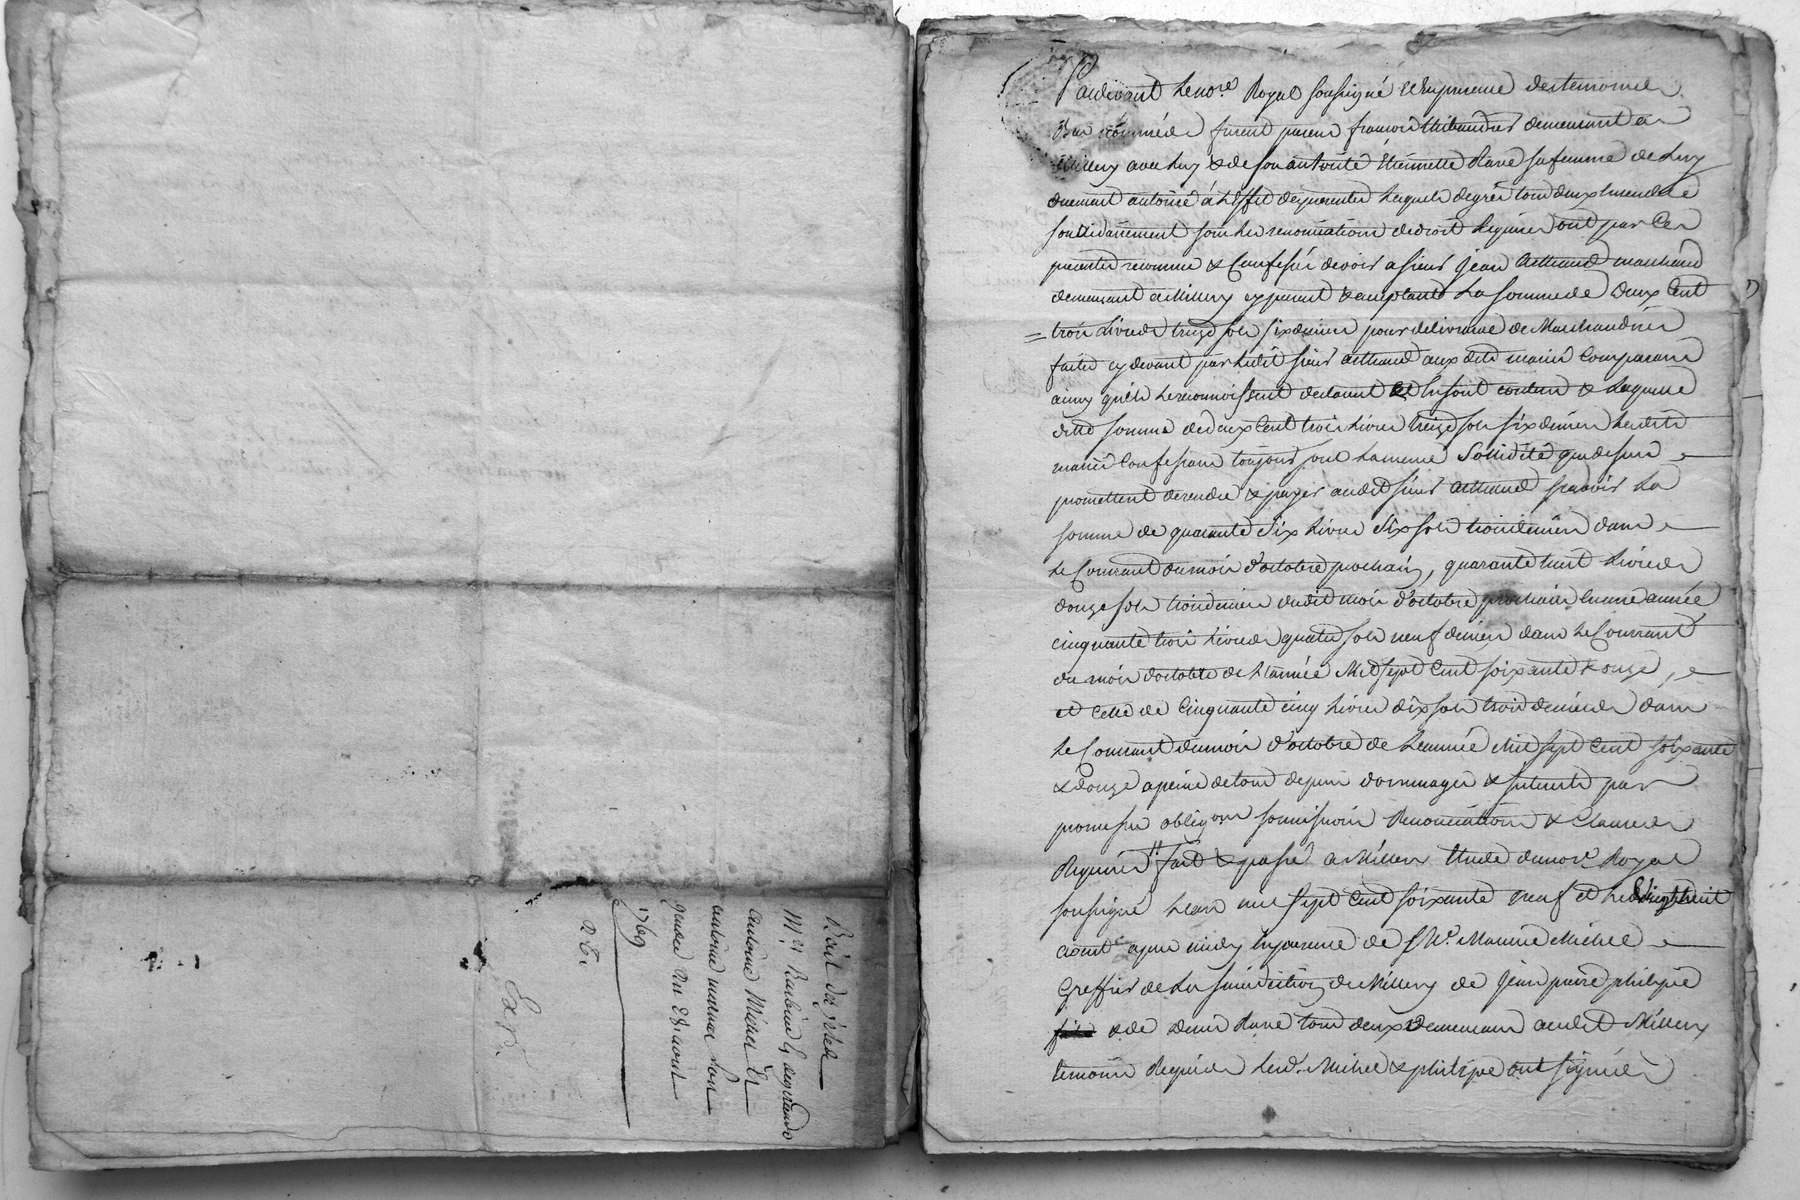 Bail de
Mrs
antoine
antoine son
gendre Du 28 aout
1769
Exp.
Pardevant Le nore Royal soussigné Et En presence des temoins
Bas nommés furent presens françois thibaudier demeurant a
Millery avec Luy & de son autorité Etiennette Rave sa femme de Luy
duement autorisé à L'effet des presentes Lesquels de gré tous deux
sollidairement sous Les renonciations de droit Requises ont par Ces
presentes reconnu & Confessé devoir a sieur Jean marchand
demeurant a Millery cy present & acceptant La somme de Deux Cent
trois Livres treize sols six deniers pour delivrance de Marchandises
faites cy devant par Ledit sieur aux dits mariés Comparans
ainsy qu'ils Le reconnoissent declarent Et En sont contens & Laquelle
ditte somme de deux Cent trois Livres treize sols six deniers Lesdits
mariés Confessans toujours sous La meme Sollidité que dessus
promettent de rendre & payer audit sieur scavoir La
somme de quarante six Livres six sols trois deniers dans
Le Courant du mois d'octobre prochain, quarante huit Livres
douze sols trois deniers dudit mois d'octobre prochain En une année
cinquante trois Livres quatre sols neuf deniers dans Le Courant
du mois d'octobre de L'année Mil sept Cent soixante & onze,
et Celle de Cinquante cinq Livres dix sols trois deniers dans
Le Courant du mois d'octobre de L'année Mil sept Cent soixante
& douze a peine de tous depens dommages & Interets par
promesses obligons soumissions Renonciations & Clauses
Requises fait & passé a Millery Etude du nore Royal
soussigné L'an mil sept Cent soixante neuf et Le Vingt huit
aout apres midy En presence de sr Me Maurice Michel
Greffier de La Juridiction de Millery de Jean pierre philippe
& de Denis Rave tous deux Demeurans audit Millery
temoins Requis Lesd. Michel & philippe ont signés